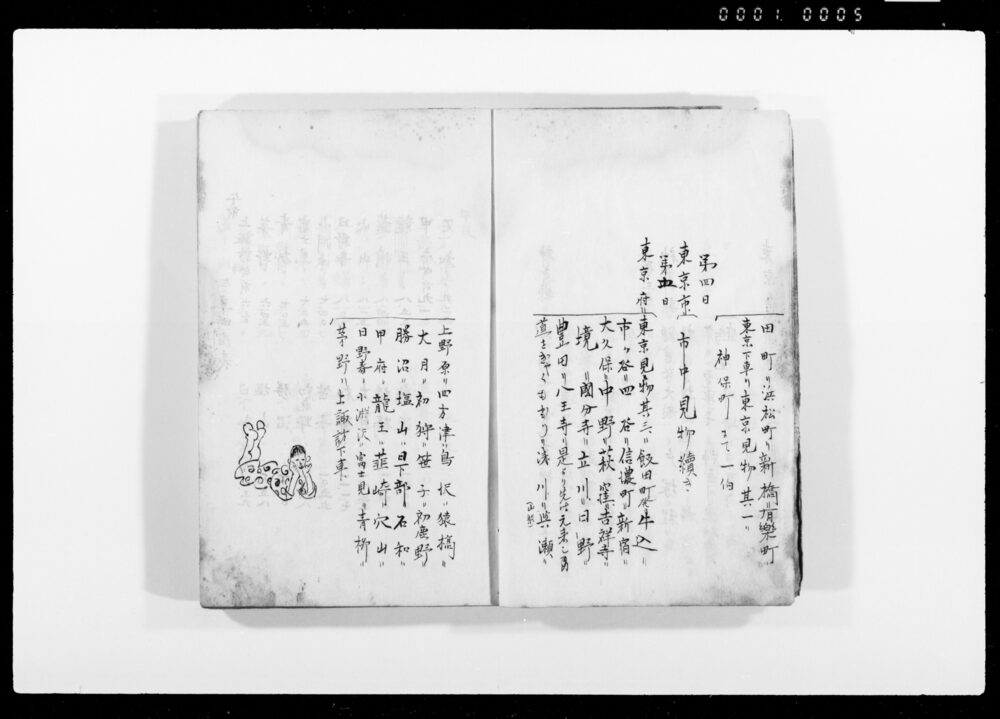 0001 0005
田町〃浜松町〃新橋〃有樂町〃
東京下車〃東京見物其一〃
神保町ニて一伯
第四日
東京市 市中見物續き
第五日
東京府〃東京見物其三〃飯田町発牛込〃
市ヶ谷〃四谷〃信濃町〃新宿〃
大久保〃中野〃萩窪〃吉祥寺〃
境〃國分寺〃立川〃日野〃
豊田〃八王寺〃是より先は元来し
浅川〃與瀬〃
上野原〃四方津〃鳥沢〃猿橋〃
大月〃初狩〃笹子〃初鹿野〃
勝沼〃塩山〃日下部〃石和〃
甲府〃龍王〃韮崎〃穴山〃
日野春〃小淵沢〃富士見〃青柳〃
茅野〃上諏訪下車〃